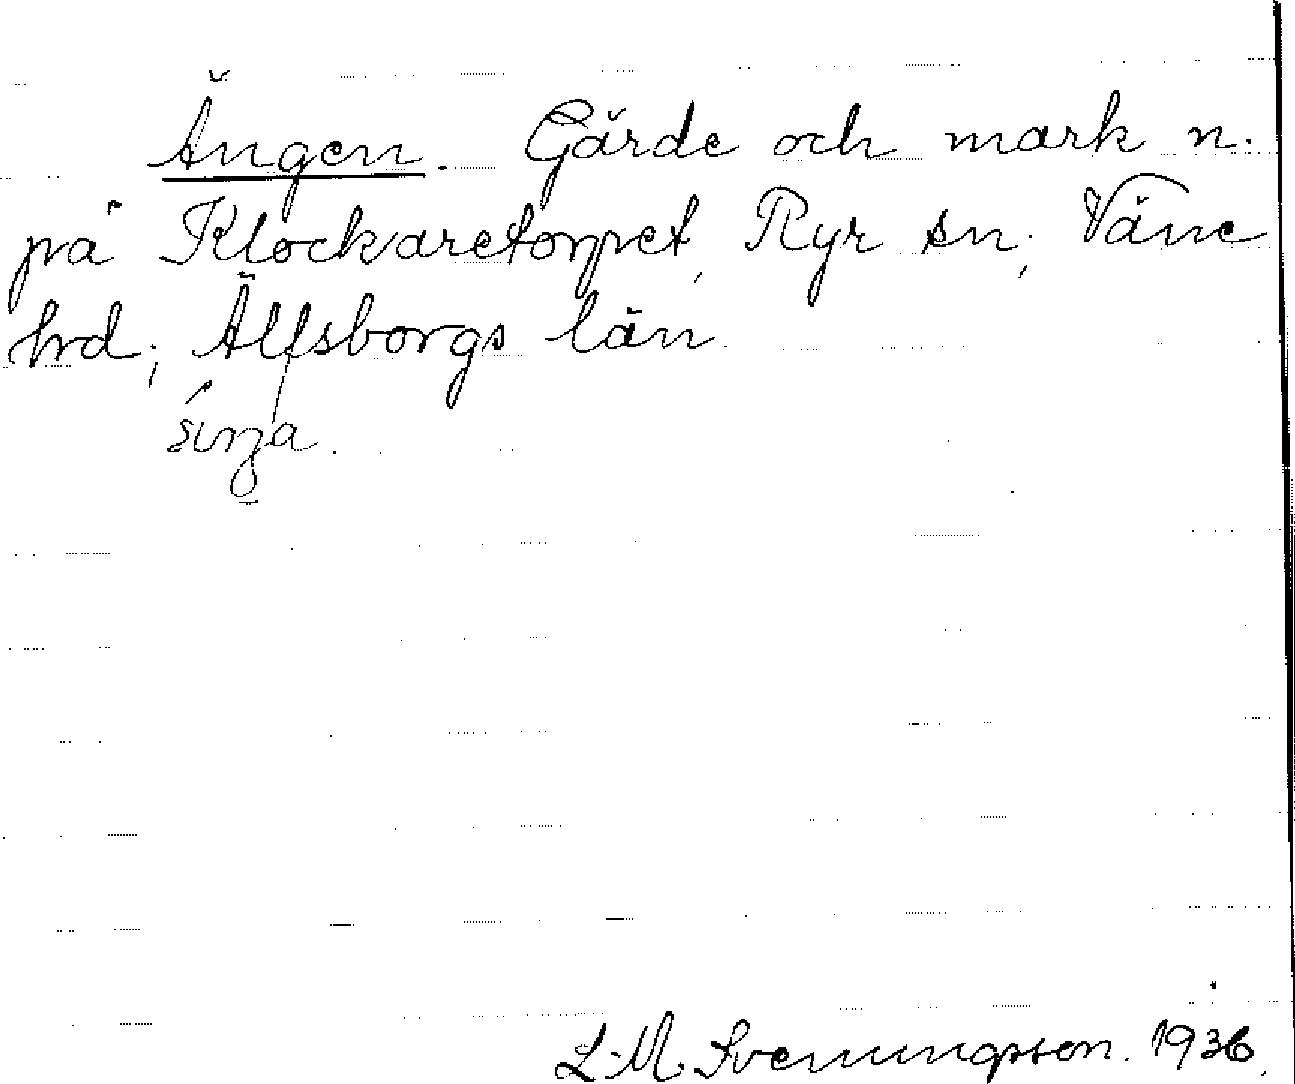 Ängen. Gärde och mark n.
på Klockaretorpet, Ryr sn; Väne
hrd; Älfsborgs län.
L. M. Svenungsson. 1936.